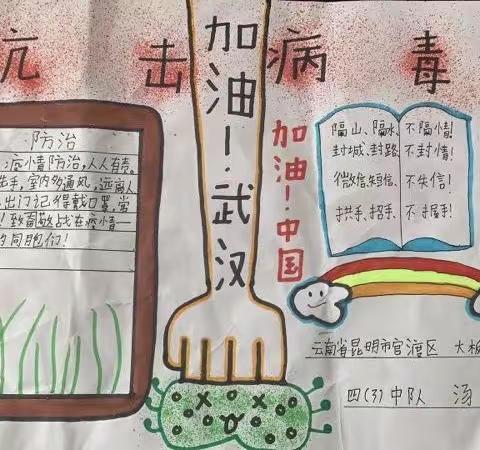 抗击病毒
加油!武汉
加油!中国
防治
疫情防治,人人有责。
手,室内多通风,远离人
出门记得戴口罩
致敬战在疫情一
的同胞们!
隔山、隔水、不隔情!
封城、封路、不封情!
微信、短信、不失信!
拱手、招手、不握手!
云南省昆明市官渡区 大板
四(3)中队 汤